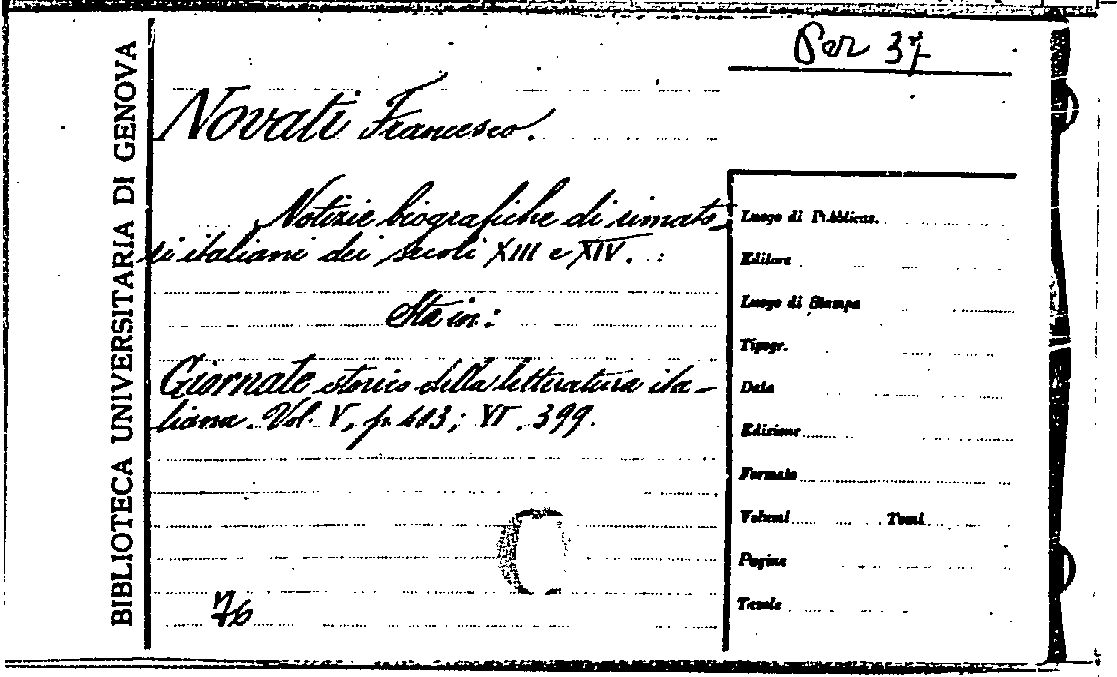 BIBLIOTECA UNIVERSITARIA DI GENOVA
Per 37
Novati Francesco.
Notizie biografiche di rimato-
ri italiani dei secoli XIII e XIV.
Sta in:
Giornale storico della letteratura ita-
liana. Vol. V, p. 413; VI. 399.
76
Luogo di Pubblicaz.
Editore
Luogo di Stampa
Tipogr.
Data
Edizione
Formato
Volumi Tomi
Pagine
Tavole